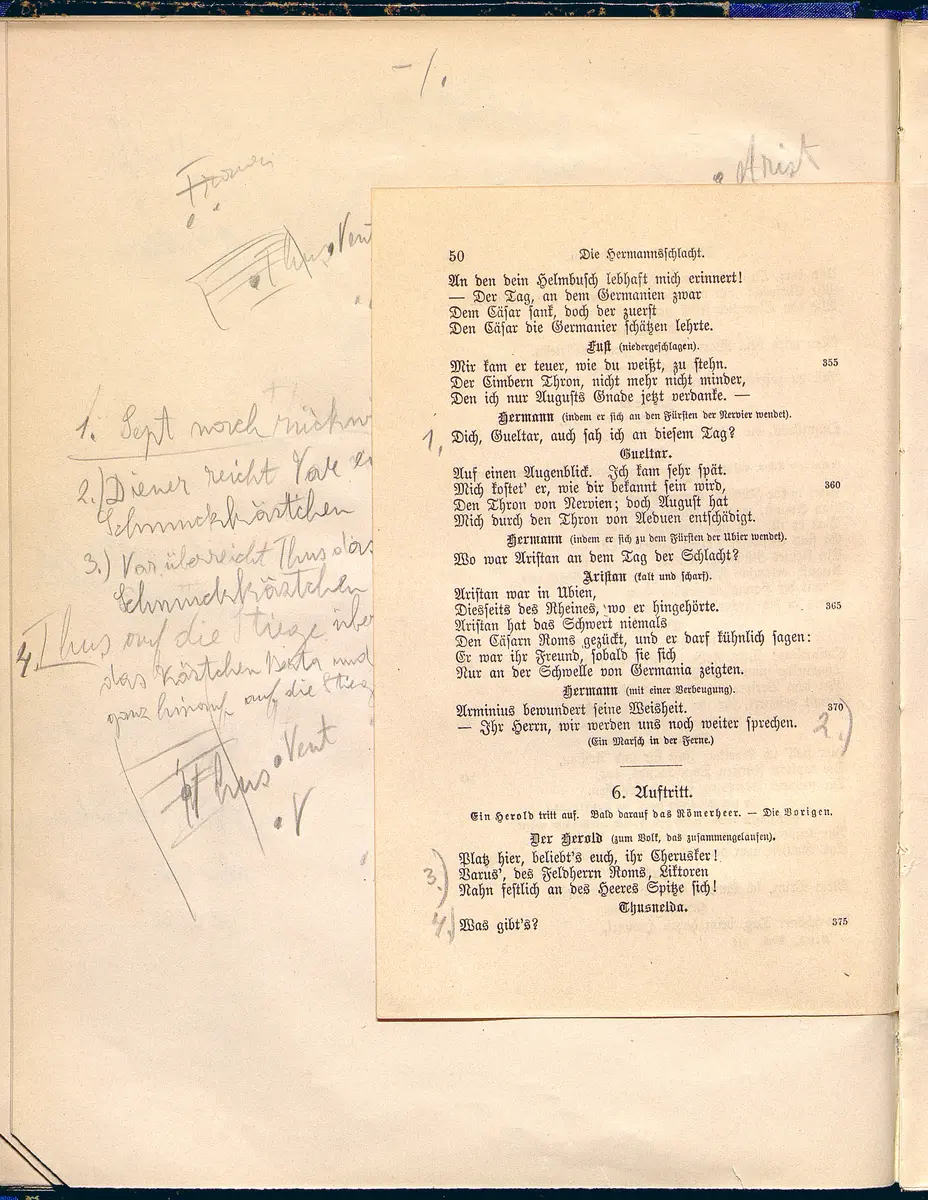 -/.
Arist
Thus Vent
1. Sept noch
2.) Diener reicht
Schmuckkästchen
3.) Var überreicht Thus das
Schmuckkästchen
4. Thus auf die Stiege
das Kästchen und
ganz hinauf auf die
Thus Vent
V
50 Die Hermannsschlacht.
An den dein Helmbusch lebhaft mich erinnert!
— Der Tag, an dem Germanien zwar
Dem Cäsar sank, doch der zuerst
Den Cäsar die Germanier schätzen lehrte.
Fust (niedergeschlagen).
Mir kam er teuer, wie du weißt, zu stehn. 355
Der Cimbern Thron, nicht mehr nicht minder,
Den ich nur Augusts Gnade jetzt verdanke. —
Hermann (indem er sich an den Fürsten der Nervier wendet).
1. Dich, Gueltar, auch sah ich an diesem Tag?
Gueltar.
Auf einen Augenblick. Ich kam sehr spät.
Mich kostet' er, wie dir bekannt sein wird, 360
Den Thron von Nervien; doch August hat
Mich durch den Thron von Aeduen entschädigt.
Hermann (indem er sich zu dem Fürsten der Ubier wendet).
Wo war Aristan an dem Tag der Schlacht?
Aristan (kalt und scharf).
Aristan war in Ubien,
Diesseits des Rheines, wo er hingehörte. 365
Aristan hat das Schwert niemals
Den Cäsarn Roms gezückt, und er darf kühnlich sagen:
Er war ihr Freund, sobald sie sich
Nur an der Schwelle von Germania zeigten.
Hermann (mit einer Verbeugung).
Arminius bewundert seine Weisheit. 370
— Ihr Herrn, wir werden uns noch weiter sprechen. 2.)
(Ein Marsch in der Ferne.)
6. Auftritt.
Ein Herold tritt auf. Bald darauf das Römerheer. — Die Vorigen.
Der Herold (zum Volk, das zusammengelaufen).
Platz hier, beliebt's euch, ihr Cherusker!
3.) Varus', des Feldherrn Roms, Liktoren
Nahn festlich an des Heeres Spitze sich!
Thusnelda.
4.) Was gibt's? 375